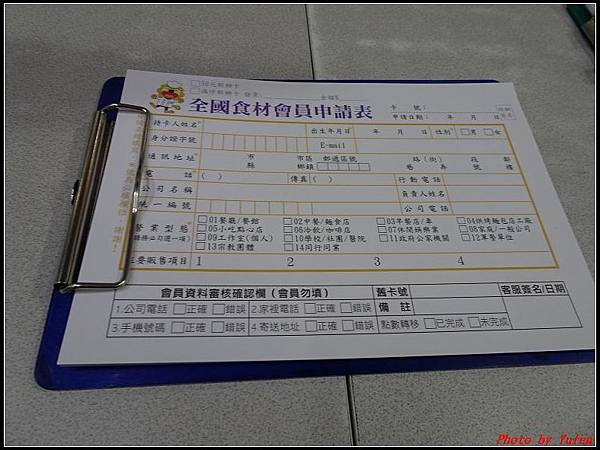 全國食材會員申請表
卡　號：
申請日期：　年　月　日
持卡人姓名
出生年月日　年　月　日　性別　□男　□女
身分證字號
E-mail
通訊地址　市縣　市區鄉鎮　郵遞區號　路(街)巷　段弄　鄰號
電　話　(　)　傳真　(　)　行動電話
公司名稱　負責人姓名
統一編號　公司電話
營業型態
□01餐廳/餐館　□02中餐/麵食店　□03早餐店/車　□04烘烤麵包店工廠
□05小吃點心店　□06冷飲/咖啡店　□07休閒娛樂業　□08家庭/一般公司
□09工作室(個人)　□10學校/社團/醫院　□11政府公家機關　□12軍警單位
□13宗教團體　□14同行同業
主要販售項目　1　2　3　4
會員資料審核確認欄（會員勿填）　舊卡號　客服簽名/日期
1.公司電話　□正確　□錯誤　2.家裡電話　□正確　□錯誤　備　註
3.手機號碼　□正確　□錯誤　4.寄送地址　□正確　□錯誤　點數轉移　□已完成　□未完成
Photo by Yufen